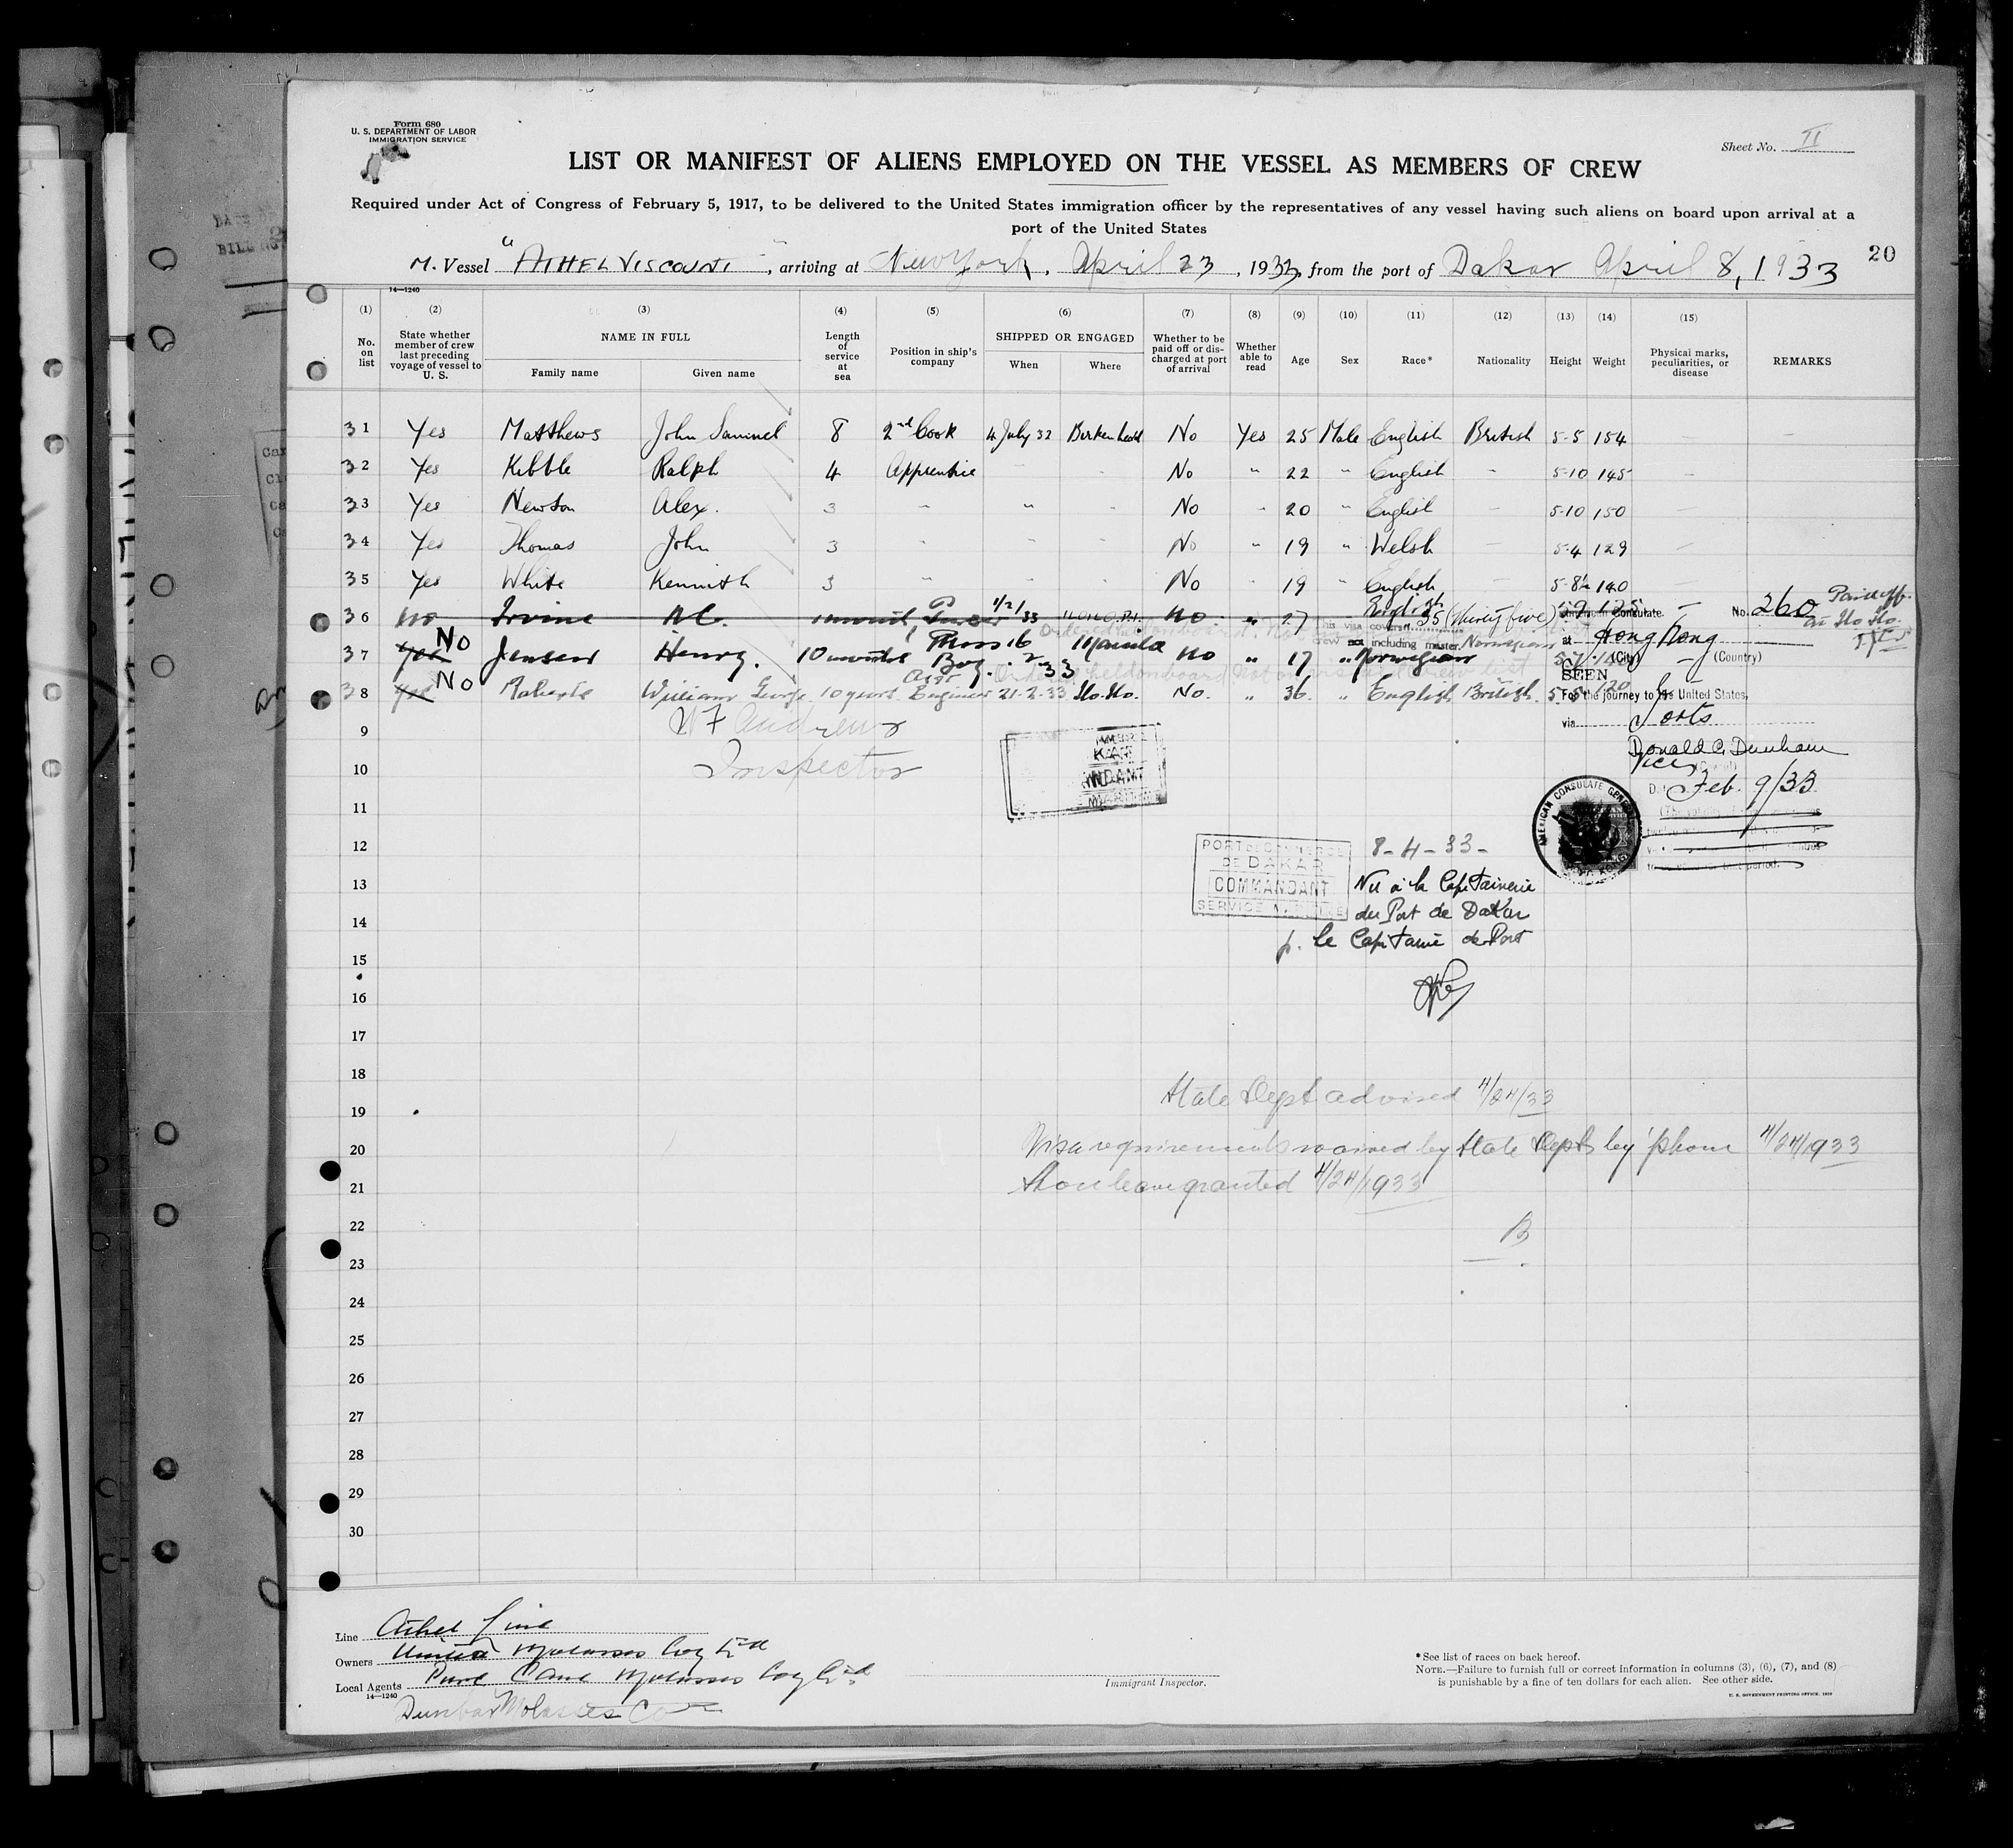 Form 680
U. S. DEPARTMENT OF LABOR
IMMIGRATION SERVICE
Sheet No. II
LIST OR MANIFEST OF ALIENS EMPLOYED ON THE VESSEL AS MEMBERS OF CREW
Required under Act of Congress of February 5, 1917, to be delivered to the United States immigration officer by the representatives of any vessel having such aliens on board upon arrival at a
port of the United States
M. Vessel "ATHELVISCOUNT", arriving at New York, April 23, 1933, from the port of Dakar April 8, 1933
20
14—1240
(1) (2) (3) (4) (5) (6) (7) (8) (9) (10) (11) (12) (13) (14) (15)
No. on list State whether member of crew last preceding voyage of vessel to U. S. NAME IN FULL Family name Given name Length of service at sea Position in ship's company SHIPPED OR ENGAGED When Where Whether to be paid off or discharged at port of arrival Whether able to read Age Sex Race* Nationality Height Weight Physical marks, peculiarities, or disease REMARKS
31 Yes Matthews John Samuel 8 2nd Cook 4 July 32 Birkenhead No Yes 25 Male English British 5-5 154 —
32 Yes Kibble Ralph 4 Apprentice " " No " 22 " English " 5-10 145 —
33 Yes Newton Alex. 3 " " " No " 20 " English — 5-10 150 —
34 Yes Thomas John 3 " " " No " 19 " Welsh — 5-4 129 —
35 Yes White Kennith 3 " " " No " 19 " English — 5-8½ 140 —
36 No Irvine 1/2/33 No " 27 English
Paid off at Ilo Ilo
American Consulate. No. 260
This visa covers 35 (thirty five)
crew not including master.
at Hong Kong
(City) (Country)
37 Yes No Jensen Henry. 10 months Mess Boy. 16.2.33 Manila No " 17 " Norwegian Norwegian 5-7
SEEN
38 Yes No Roberts William George 10 years Asst Engineer 21-2-33 Ilo. Ilo. No. " 36. " English British 5-8 120
For the journey to the United States,
via Ports
9 W F Andrews
10 Inspector
Donald C. Dunham
Vice
Feb. 9/33
AMERICAN CONSULATE GENERAL
11
12
PORT DE COMMERCE
DE DAKAR
COMMANDANT
8-4-33-
13 Vu à la Capitainerie
du Port de Dakar
14
p. le Capitaine de Port
15
16
17
18
State Dept advised 4/24/33
19
20 Visa requirements waived by State Dept by 'phone 4/24/1933
21 Shore leave granted 4/24/1933
22 B
23
24
25
26
27
28
29
30
Line Athel Line
Owners United Molasses Coy Ltd
Local Agents Pure Cane Molasses Coy Ltd.
14—1240
Dunbar Molasses Co
Immigrant Inspector.
*See list of races on back hereof.
NOTE.—Failure to furnish full or correct information in columns (3), (6), (7), and (8)
is punishable by a fine of ten dollars for each alien. See other side.
U. S. GOVERNMENT PRINTING OFFICE